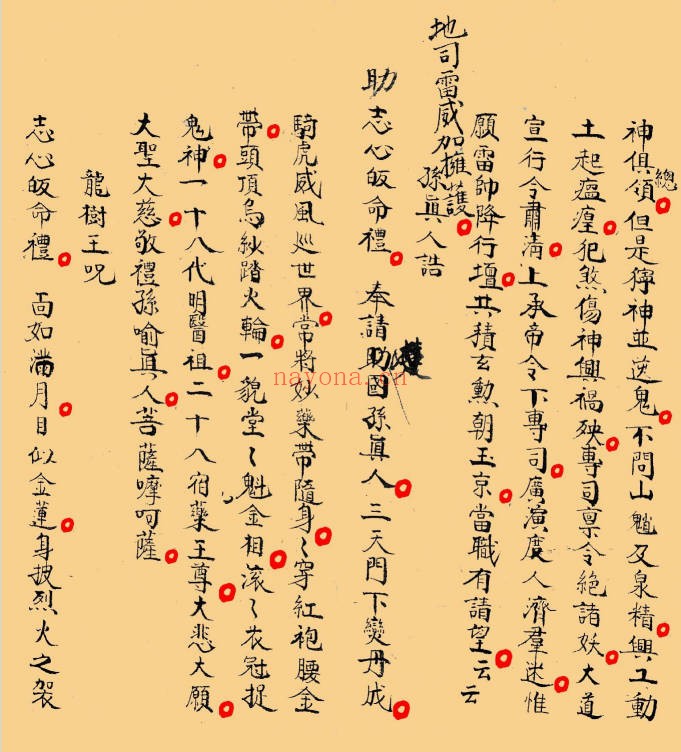 神俱總領但是獰神並送鬼不問山魈及泉精興工動
土起瘟𤸎犯煞傷神興禍殃專司禀令絕諸妖大道
宣行令肅清上承帝令下專司廣演度人濟羣迷惟
願雷帥降行壇共積玄勲朝玉京當職有請望云云
地司雷威加擁護
孫眞人誥
助志心皈命禮 奉請助國孫眞人三天門下變丹成
騎虎威風巡世界常將妙藥帶隨身〻穿紅袍腰金
帶頭頂烏紗踏火輪一貌堂〻魁金相滚〻衣冠捉
鬼神一十八代明醫祖二十八宿藥王尊大悲大願
大聖大慈敬禮孫喻眞人菩薩嚤呵薩
龍樹王咒
志心皈命禮 面如滿月目似金蓮身披烈火之袈
nayona.cn